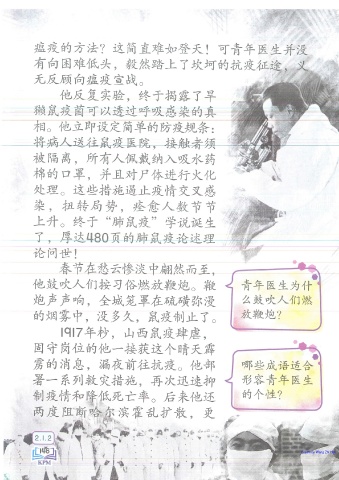 瘟疫的方法？这简直难如登天！可青年医生并没
有向困难低头，毅然踏上了坎坷的抗疫征途，义
无反顾向瘟疫宣战。
他反复实验，终于揭露了旱
獭鼠疫菌可以透过呼吸感染的真
相。他立即设定简单的防疫规条：
将病人送往鼠疫医院，接触者须
被隔离，所有人佩戴纳入吸水药
棉的口罩，并且对尸体进行火化
处理。这些措施遏止疫情交叉感
染，扭转局势，痊愈人数节节
上升。终于“肺鼠疫”学说诞生
了，厚达480页的肺鼠疫论述理
论问世！
春节在愁云惨淡中翩然而至，
他鼓吹人们按习俗燃放鞭炮。鞭
炮声声响，全城笼罩在硫磺弥漫
的烟雾中，没多久，鼠疫制止了。
1917年秒，山西鼠疫肆虐，
固守岗位的他一接获这个晴天霹
雳的消息，漏夜前往抗疫。他部
署一系列救灾措施，再次迅速抑
制疫情和降低死亡率。后来他还
两度阻断哈尔滨霍乱扩散，更
青年医生为什
么鼓吹人们燃
放鞭炮？
哪些成语适合
形容青年医生
的个性？
2.1.2
148
KPM